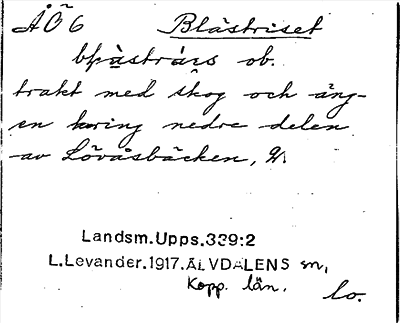 ÅÖ 6 Blästriset
bḷä̀strḯs ob.
trakt med skog och äng-
en kring nedre delen
av Lövåsbäcken,
Landsm.Upps.339:2
L.Levander.1917.ÄLVDALENS sn,
Kopp. län.
lo.